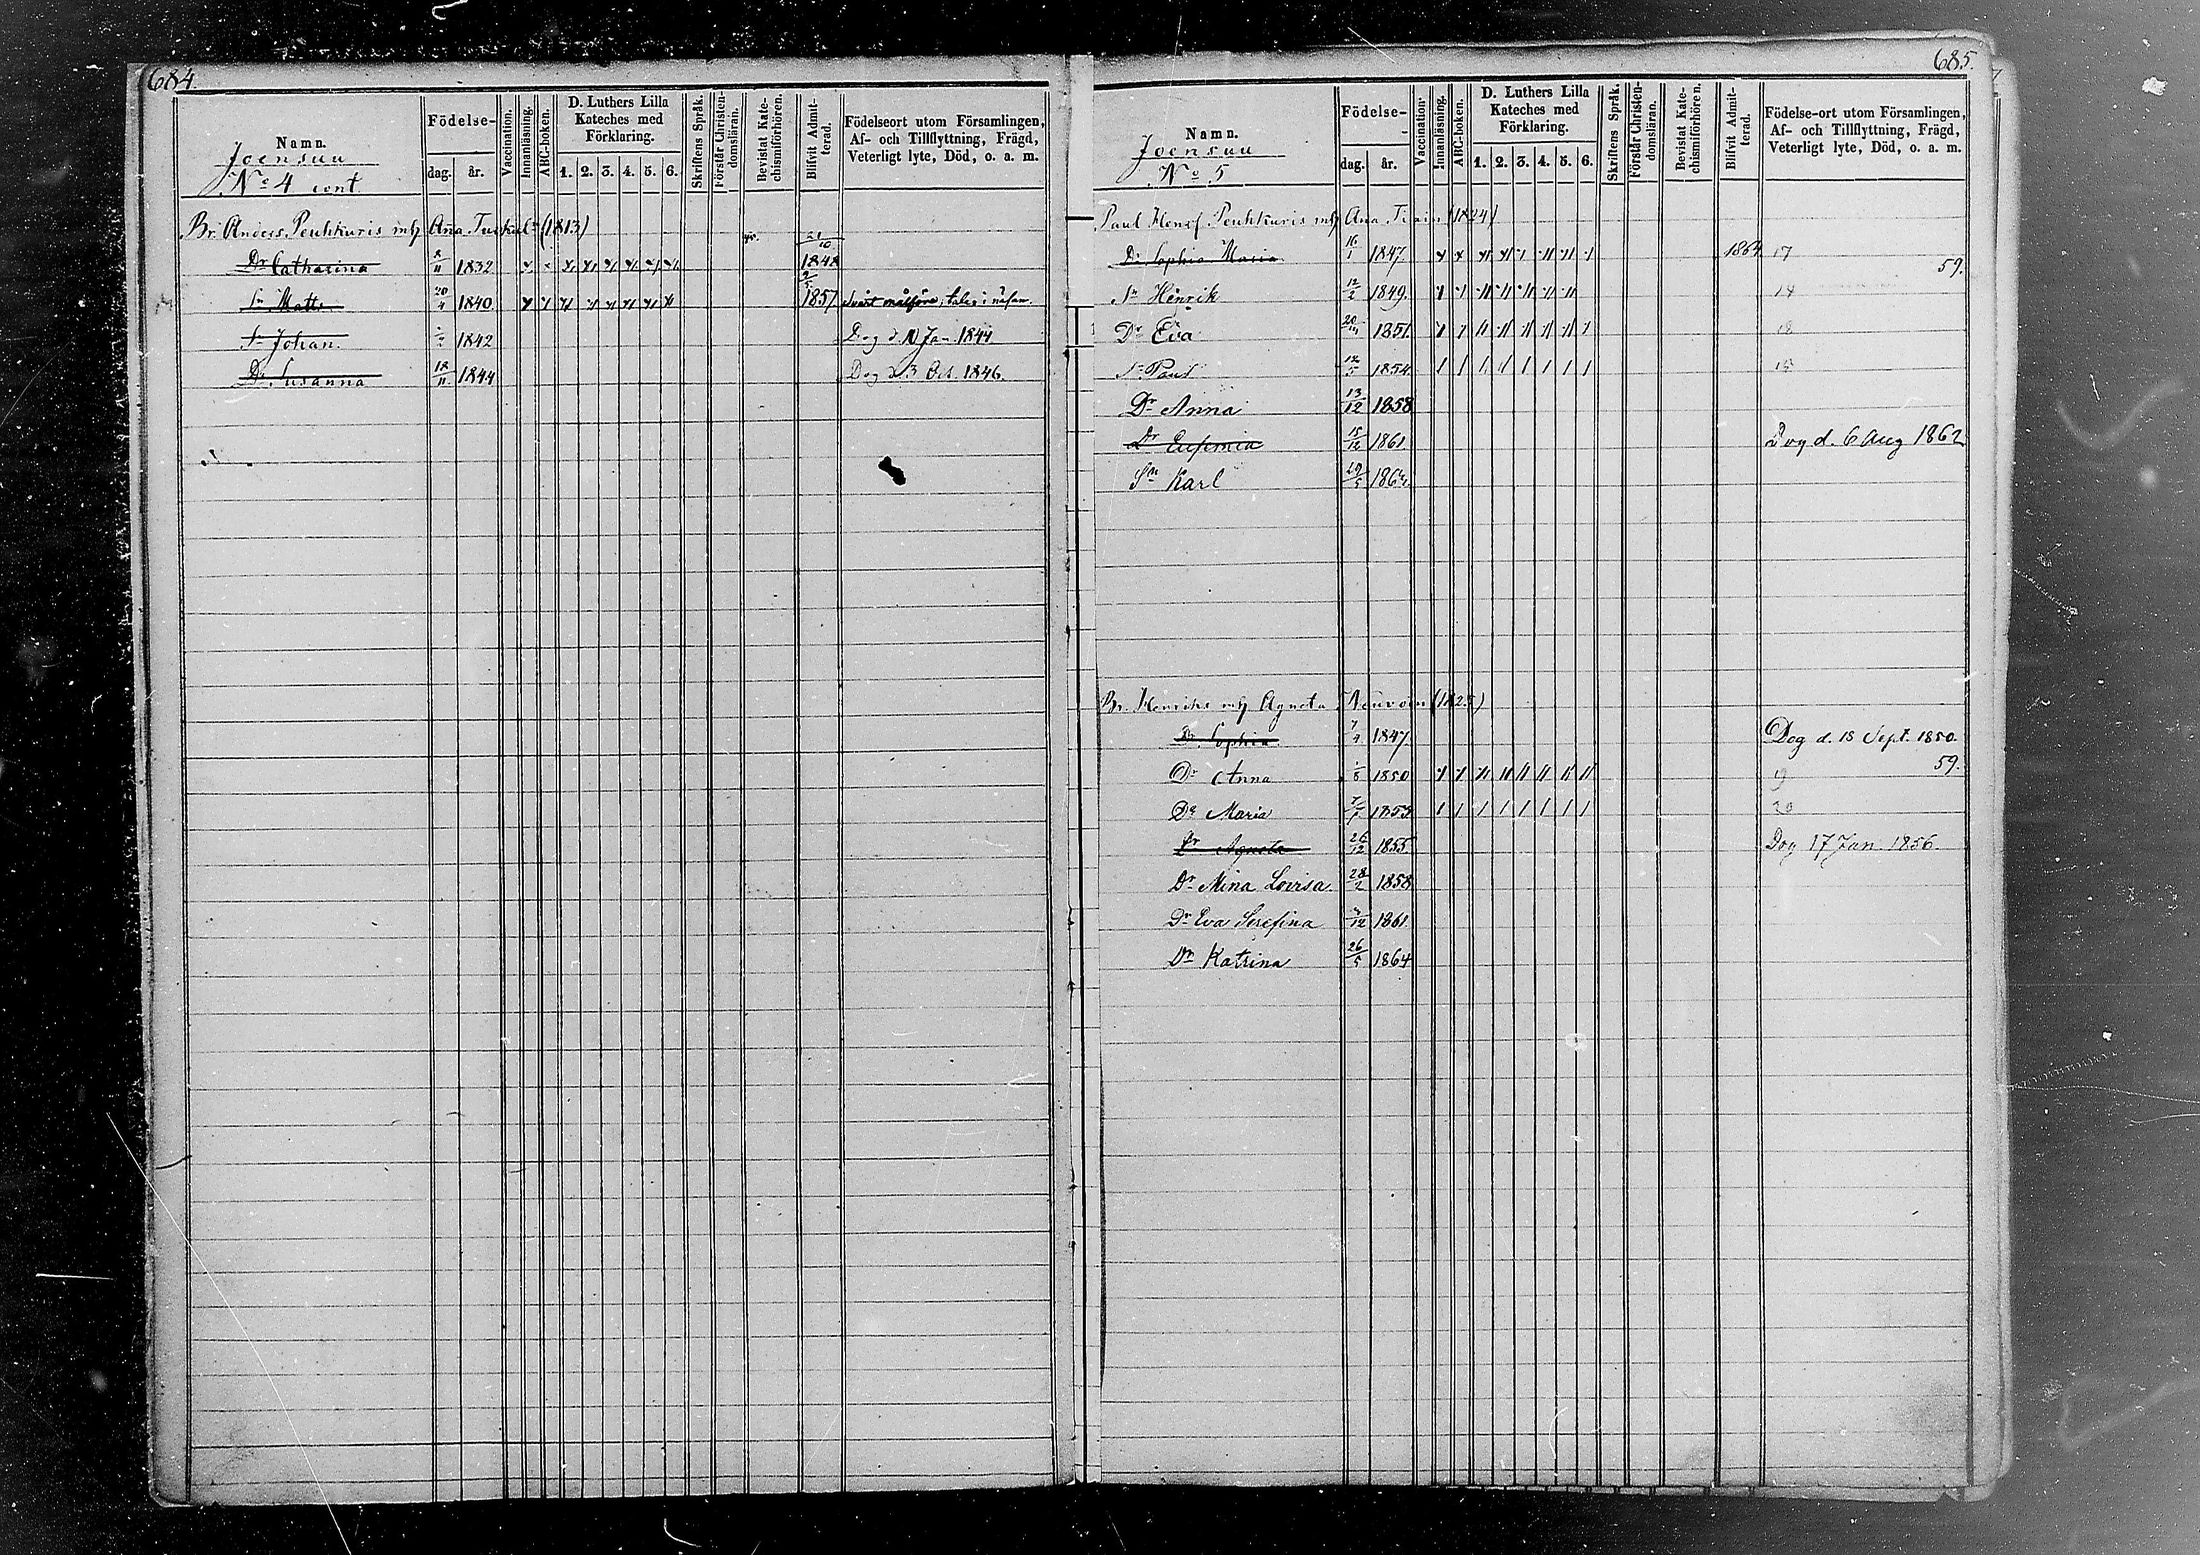 684.
Namn.
Joensuu
No 4 cont
Födelse-
dag.
år.
Vaccination.
Innanläsning.
ABC-boken.
D. Luthers Lilla
Kateches med
Förklaring.
1. 2. 3. 4. 5. 6.
Skriftens Språk.
Förstår Christen-
domsläran.
Bevistat Kate-
chismiförhören.
Blifvit Admit-
terad.
Födelseort utom Församlingen,
Af- och Tillflyttning, Frägd,
Veterligt lyte, Död, o. a. m.
Br. Anders Peuhkuris mh Aña (1813)
Dr Catharina 8/11 1832 1848
Sn Matts 20/4 1840. 1857 Svårt målföre, talar i näsan.
Sn Johan. 1842 Dog d. 10 Jan. 1844
Dr Susanna 18/11 1844 Dog d. 3 Oct. 1846.
685.
Namn.
Joensuu
No 5
Födelse-
dag.
år.
Vaccination
Innanläsning.
ABC-boken.
D. Luthers Lilla
Kateches med
Förklaring.
1. 2. 3. 4. 5. 6.
Skriftens Språk.
Förstår Christen-
domsläran.
Bevistat Kate-
chismiförhören.
Blifvit Admit-
terad.
Födelse-ort utom Församlingen,
Af- och Tillflyttning, Frägd,
Veterligt lyte, Död, o. a. m.
Paul Henrs Peuhkuris mh Ana (1824)
Dr Sophia Maria 16/1 1847. 1864 17
59.
Sn Henrik 12/2 1849.
Dr Eva 1851. 18
Sn Paul 12/5 1854. 15
Dr Anna 13/12 1858
Dr Eufemia 15/12 1861. Dog d. 6 Aug 1862
Sn Karl 29/5 1864.
Br. Henriks mh Agneta
Dr Sophia 1847. Dog d. 18 Sept. 1850.
59.
Dr Anna 1850 19
Dr Maria 1853 20
Dr Agneta 26/12 1855 Dog 17 Jan. 1856.
Dr Mina Lovisa 28/2 1858
Dr Eva Serefina 1861.
Dr Katrina 26/5 1864